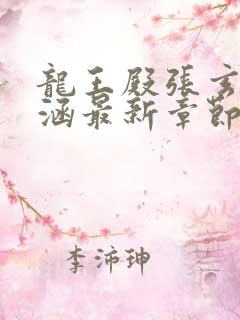 龍王殿張玄
涵最新章節
李沛珅